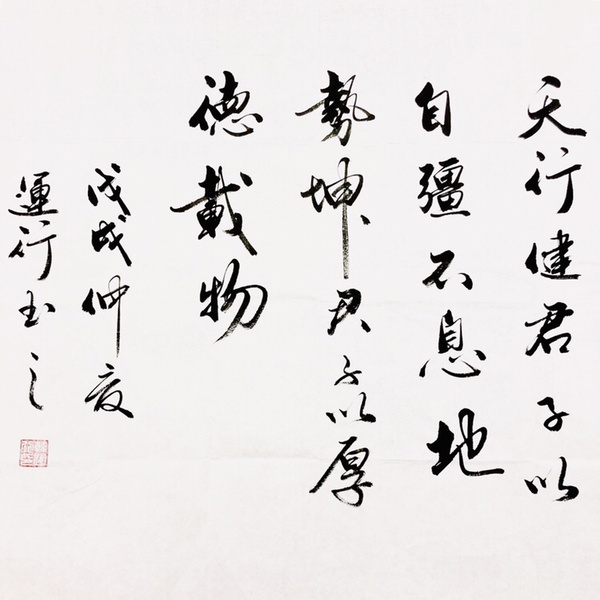 天行健君子以
自疆不息地
勢坤君子以厚
德載物
戊戌仲夏
運行書之